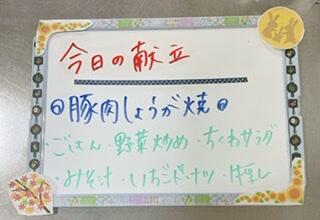 今日の献立
◎豚肉しょうが焼◎
・ごはん・野菜炒め・ちくわサラダ
・みそ汁・いちごドーナツ・牛乳